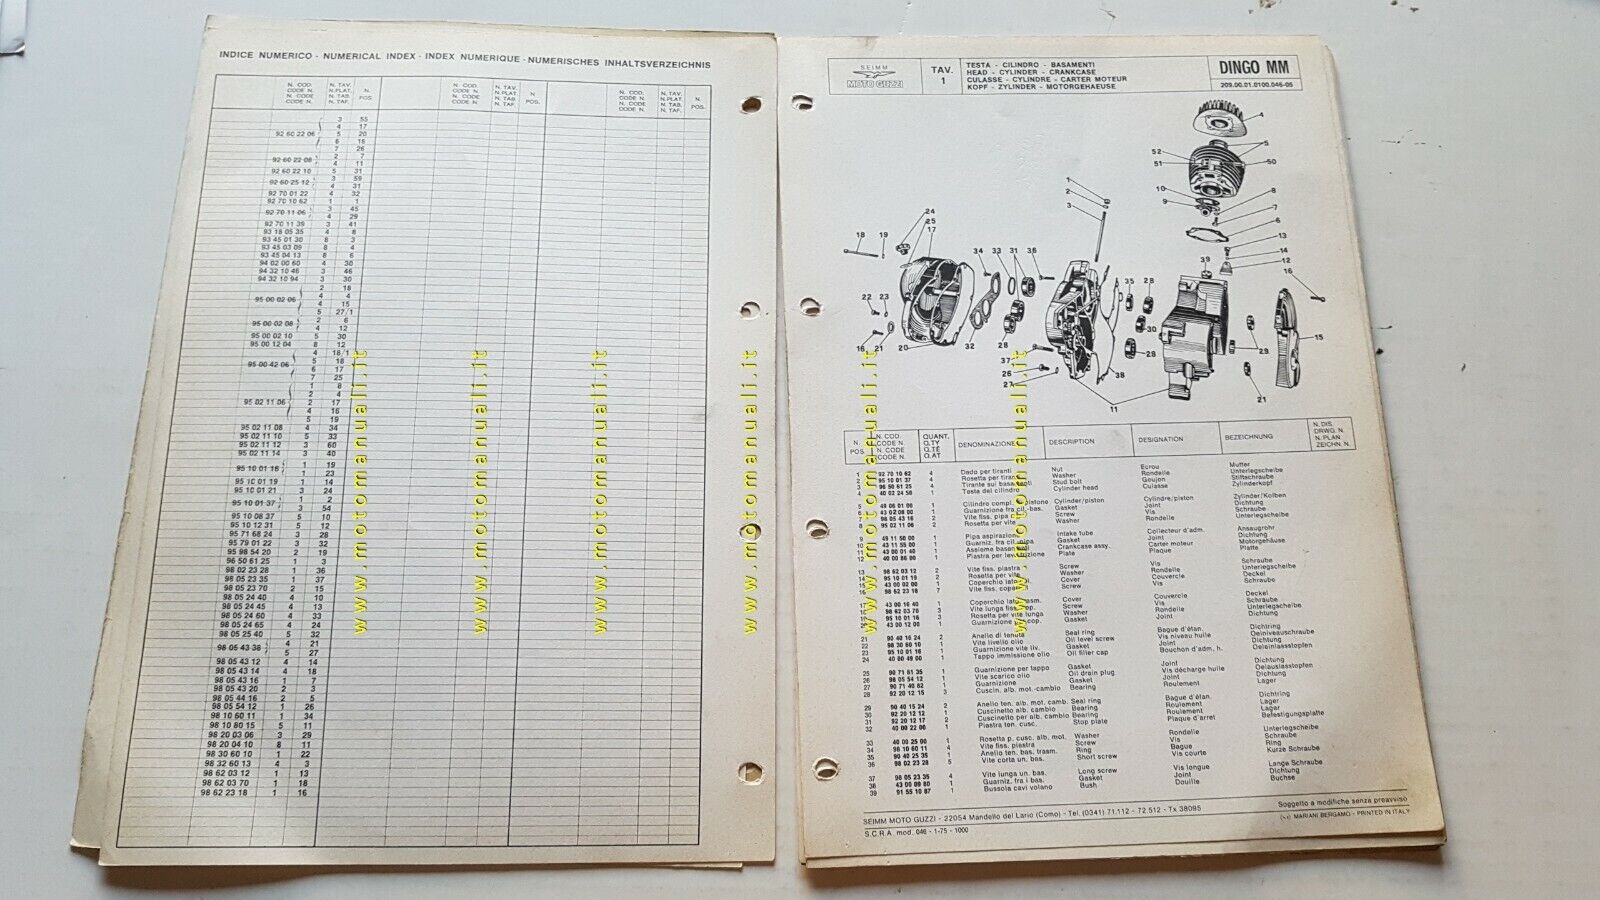 INDICE NUMERICO - NUMERICAL INDEX - INDEX NUMERIQUE - NUMERISCHES INHALTSVERZEICHNIS
N. COD. CODE N. N. CODE CODE N.
N. TAV. N. PLAT. N. TAB. N. TAF.
N. POS.
N. COD. CODE N. N. CODE CODE N.
N. TAV. N. PLAT. N. TAB. N. TAF.
N. POS.
N. COD. CODE N. N. CODE CODE N.
N. TAV. N. PLAT. N. TAB. N. TAF.
N. POS.
3 55
4 17
92 60 22 06 5 20
6 16
7 26
92 60 22 08 2 7
4 11
92 60 22 10 5 31
92 60 25 12 3 59
4 31
92 70 01 22 4 32
92 70 10 62 1 1
92 70 11 06 3 45
4 29
92 70 11 39 3 41
93 18 05 35 4 8
93 45 01 30 8 3
93 45 03 09 8 4
93 45 04 13 8 6
94 02 00 60 4 30
94 32 10 46 3 46
94 32 10 94 3 30
2 18
95 00 02 06 4 4
4 15
5 27/1
95 00 02 08 2 6
4 12
95 00 02 10 5 30
95 00 12 04 8 12
4 18/1
95 00 42 06 5 18
6 17
7 25
1 8
2 4
95 02 11 06 2 17
4 16
5 19
95 02 11 08 4 34
95 02 11 10 5 33
95 02 11 12 3 60
95 02 11 14 3 40
95 10 01 16 1 19
1 23
95 10 01 19 1 14
95 10 01 21 3 24
95 10 01 37 1 2
3 54
95 10 08 37 5 10
95 10 12 31 5 12
95 71 68 24 3 28
95 79 01 22 3 32
95 98 54 20 2 19
96 50 61 25 1 3
98 02 23 28 1 36
98 05 23 35 1 37
98 05 23 70 2 15
98 05 24 40 4 10
98 05 24 45 4 13
98 05 24 60 4 33
98 05 24 65 4 24
98 05 25 40 5 32
98 05 43 38 4 21
5 27
98 05 43 12 4 14
98 05 43 14 4 18
98 05 43 16 1 7
98 05 43 20 2 3
98 05 44 16 2 5
98 05 54 12 1 26
98 10 60 11 1 34
98 10 80 15 5 11
98 20 03 06 3 29
98 20 04 10 8 11
98 30 60 10 1 22
98 32 60 13 4 3
98 62 03 12 1 13
98 62 03 70 1 18
98 62 23 18 1 16
www.motomanuali.it
www.motomanuali.it
www.motomanuali.it
www.motomanuali.it
www.motomanuali.it
www.motomanuali.it
SEIMM
MOTO GUZZI
TAV. 1
TESTA - CILINDRO - BASAMENTI
HEAD - CYLINDER - CRANKCASE
CULASSE - CYLINDRE - CARTER MOTEUR
KOPF - ZYLINDER - MOTORGEHAEUSE
DINGO MM
209.00.01.0100.046-05
N. POS.
N. COD. CODE N. N. CODE CODE N.
QUANT. Q.TY Q.TÉ Q.AT
DENOMINAZIONE
DESCRIPTION
DESIGNATION
BEZEICHNUNG
N. DIS. DRWG. N. N. PLAN ZEICHN. N.
1 92 70 10 62 4 Dado per tiranti Nut Ecrou Mutter
2 95 10 01 37 4 Rosetta per tiranti Washer Rondelle Unterlegscheibe
3 96 50 61 25 4 Tirante sui basamenti Stud bolt Goujon Stiftschraube
4 40 02 24 58 1 Testa del cilindro Cylinder head Culasse Zylinderkopf
Cylinder/piston Cylindre/piston Zylinder/Kolben
Gasket Joint Dichtung
Screw Vis Schraube
8 95 02 11 06 2 Rosetta per vite Washer Rondelle Unterlegscheibe
9 49 11 50 00 1 Pipa aspirazione Intake tube Collecteur d'adm. Ansaugrohr
10 43 11 55 00 1 Gasket Joint Dichtung
11 43 00 01 40 1 Assieme basamenti Crankcase assy. Carter moteur Motorgehäuse
12 40 00 86 00 1 Plate Plaque Platte
13 98 62 03 12 2 Vite fiss. piastra Screw Vis Schraube
14 95 10 01 19 2 Rosetta per vite Washer Rondelle Unterlegscheibe
15 43 00 02 00 1 Cover Couvercle Deckel
16 98 62 23 18 7 Screw Vis Schraube
17 43 00 16 40 1 Cover Couvercle Deckel
18 98 62 03 70 3 Screw Vis Schraube
19 95 10 01 16 3 Rosetta per vite lunga Washer Rondelle Unterlegscheibe
20 43 00 12 00 1 Gasket Joint Dichtung
21 90 40 16 24 2 Anello di tenuta Seal ring Bague d'étan. Dichtring
22 98 30 60 10 1 Vite livello olio Oil level screw Vis niveau huile Oelniveauschraube
23 95 10 01 16 1 Guarnizione vite liv. Gasket Joint Dichtung
24 40 00 49 00 1 Tappo immissione olio Oil filler cap Bouchon d'adm. h. Oeleinlasstopfen
25 90 71 61 35 1 Guarnizione per tappo Gasket Joint Dichtung
26 98 05 54 12 1 Vite scarico olio Oil drain plug Vis décharge huile Oelauslasstopfen
27 90 71 40 82 1 Guarnizione Gasket Joint Dichtung
28 92 20 12 15 3 Cuscin. alb. mot.-cambio Bearing Roulement Lager
29 90 40 15 24 2 Anello ten. alb. mot. camb. Seal ring Bague d'étan. Dichtring
30 92 20 12 12 1 Cuscinetto alb. cambio Bearing Roulement Lager
31 92 20 12 17 2 Cuscinetto per alb. cambio Bearing Roulement Lager
32 40 00 22 00 1 Piastra ten. cusc. Stop plate Plaque d'arret Befestigungsplatte
33 40 00 25 00 1 Rosetta p. cusc. alb. mot. Washer Rondelle Unterlegscheibe
34 98 10 60 11 4 Vite fiss. piastra Screw Vis Schraube
35 90 40 25 35 1 Anello ten. bas. trasm. Ring Bague Ring
36 98 02 23 28 5 Vite corta un. bas. Short screw Vis courte Kurze Schraube
37 98 05 23 35 4 Vite lunga un. bas. Long screw Vis longue Lange Schraube
38 43 00 09 80 1 Guarniz. fra i bas. Gasket Joint Dichtung
39 91 55 10 87 1 Bussola cavi volano Bush Douille Buchse
SEIMM MOTO GUZZI - 22054 Mandello del Lario (Como) - Tel. (0341) 71.112 - 72.512 - Tx 38095
Soggetto a modifiche senza preavviso
S.C.R.A. mod. 046 - 1-75 - 1000
MARIANI BERGAMO - PRINTED IN ITALY